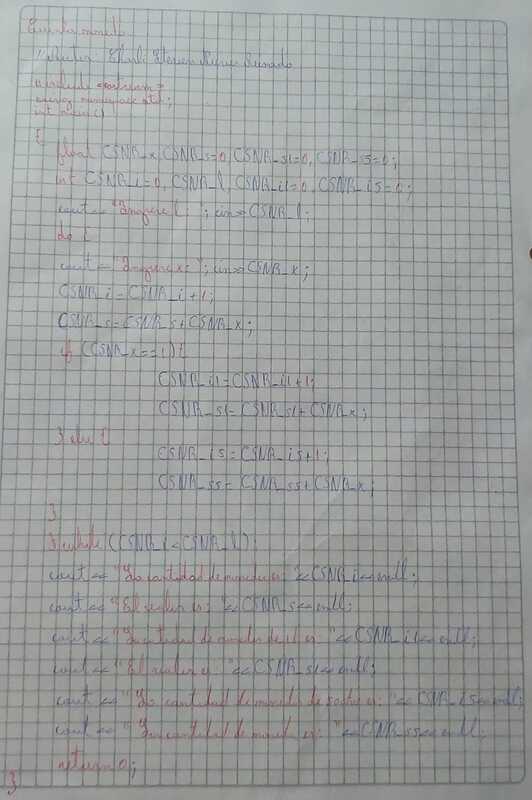 Cuenta moneda
#include <iostream>
using namespace std;
int main ()
{
float CSNR_x, CSNR_s=0, CSNR_s1=0, CSNR_s5=0;
int CSNR_i=0, CSNR_l, CSNR_i1=0, CSNR_i5=0;
cout << "Ingrese l: "; cin>>CSNR_l;
do {
cout << "Ingrese x: "; cin>>CSNR_x;
CSNR_i = CSNR_i+1;
CSNR_s = CSNR_s+CSNR_x;
if (CSNR_x==1) {
CSNR_i1 = CSNR_i1+1;
CSNR_s1 = CSNR_s1+CSNR_x;
} else {
CSNR_i5 = CSNR_i5+1;
CSNR_s5 = CSNR_s5+CSNR_x;
}
} while (CSNR_i<CSNR_l);
cout << "La cantidad de monedas es: "<<CSNR_i<<endl;
cout << "El valor es: "<<CSNR_s<<endl;
cout << "La cantidad de monedas de s1 es: "<<CSNR_i1<<endl;
cout << "El valor es: "<<CSNR_s1<<endl;
cout << "La cantidad de monedas de es: "<<CSNR_i5<<endl;
cout << "La cantidad de es: "<<CSNR_s5<<endl;
return 0;
}